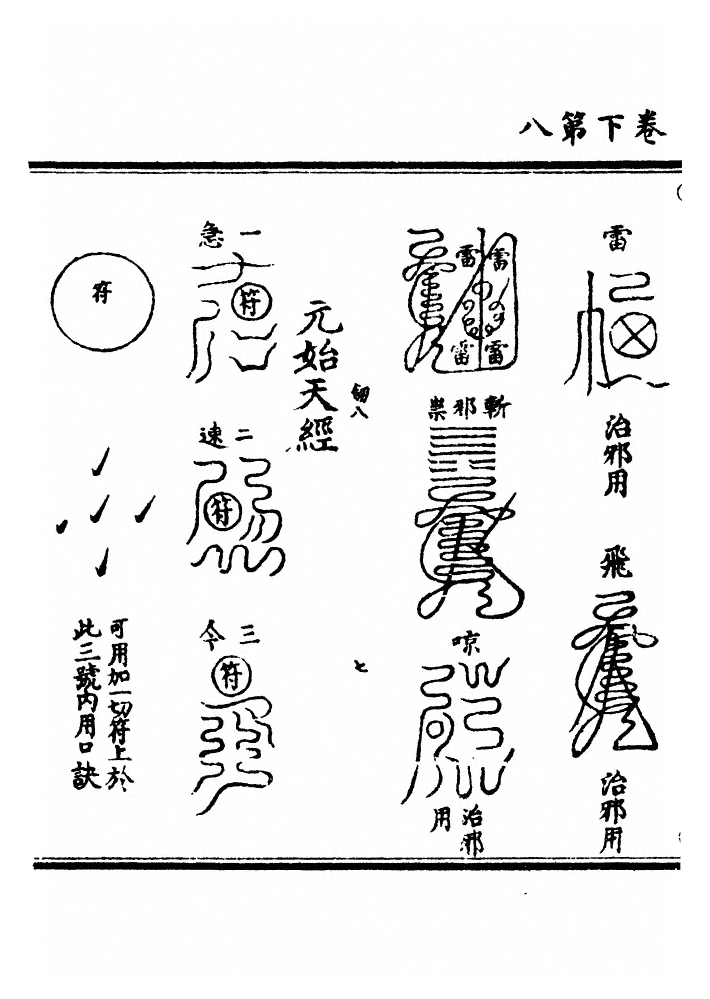 卷下第八
雷
治邪用
飛
治邪用
雷 雷
雷 雷
斬邪祟
唳
治邪
用
七
元始天經
一急
符
二速
符
三令
符
符
可用加一切符上於
此三號內用口訣